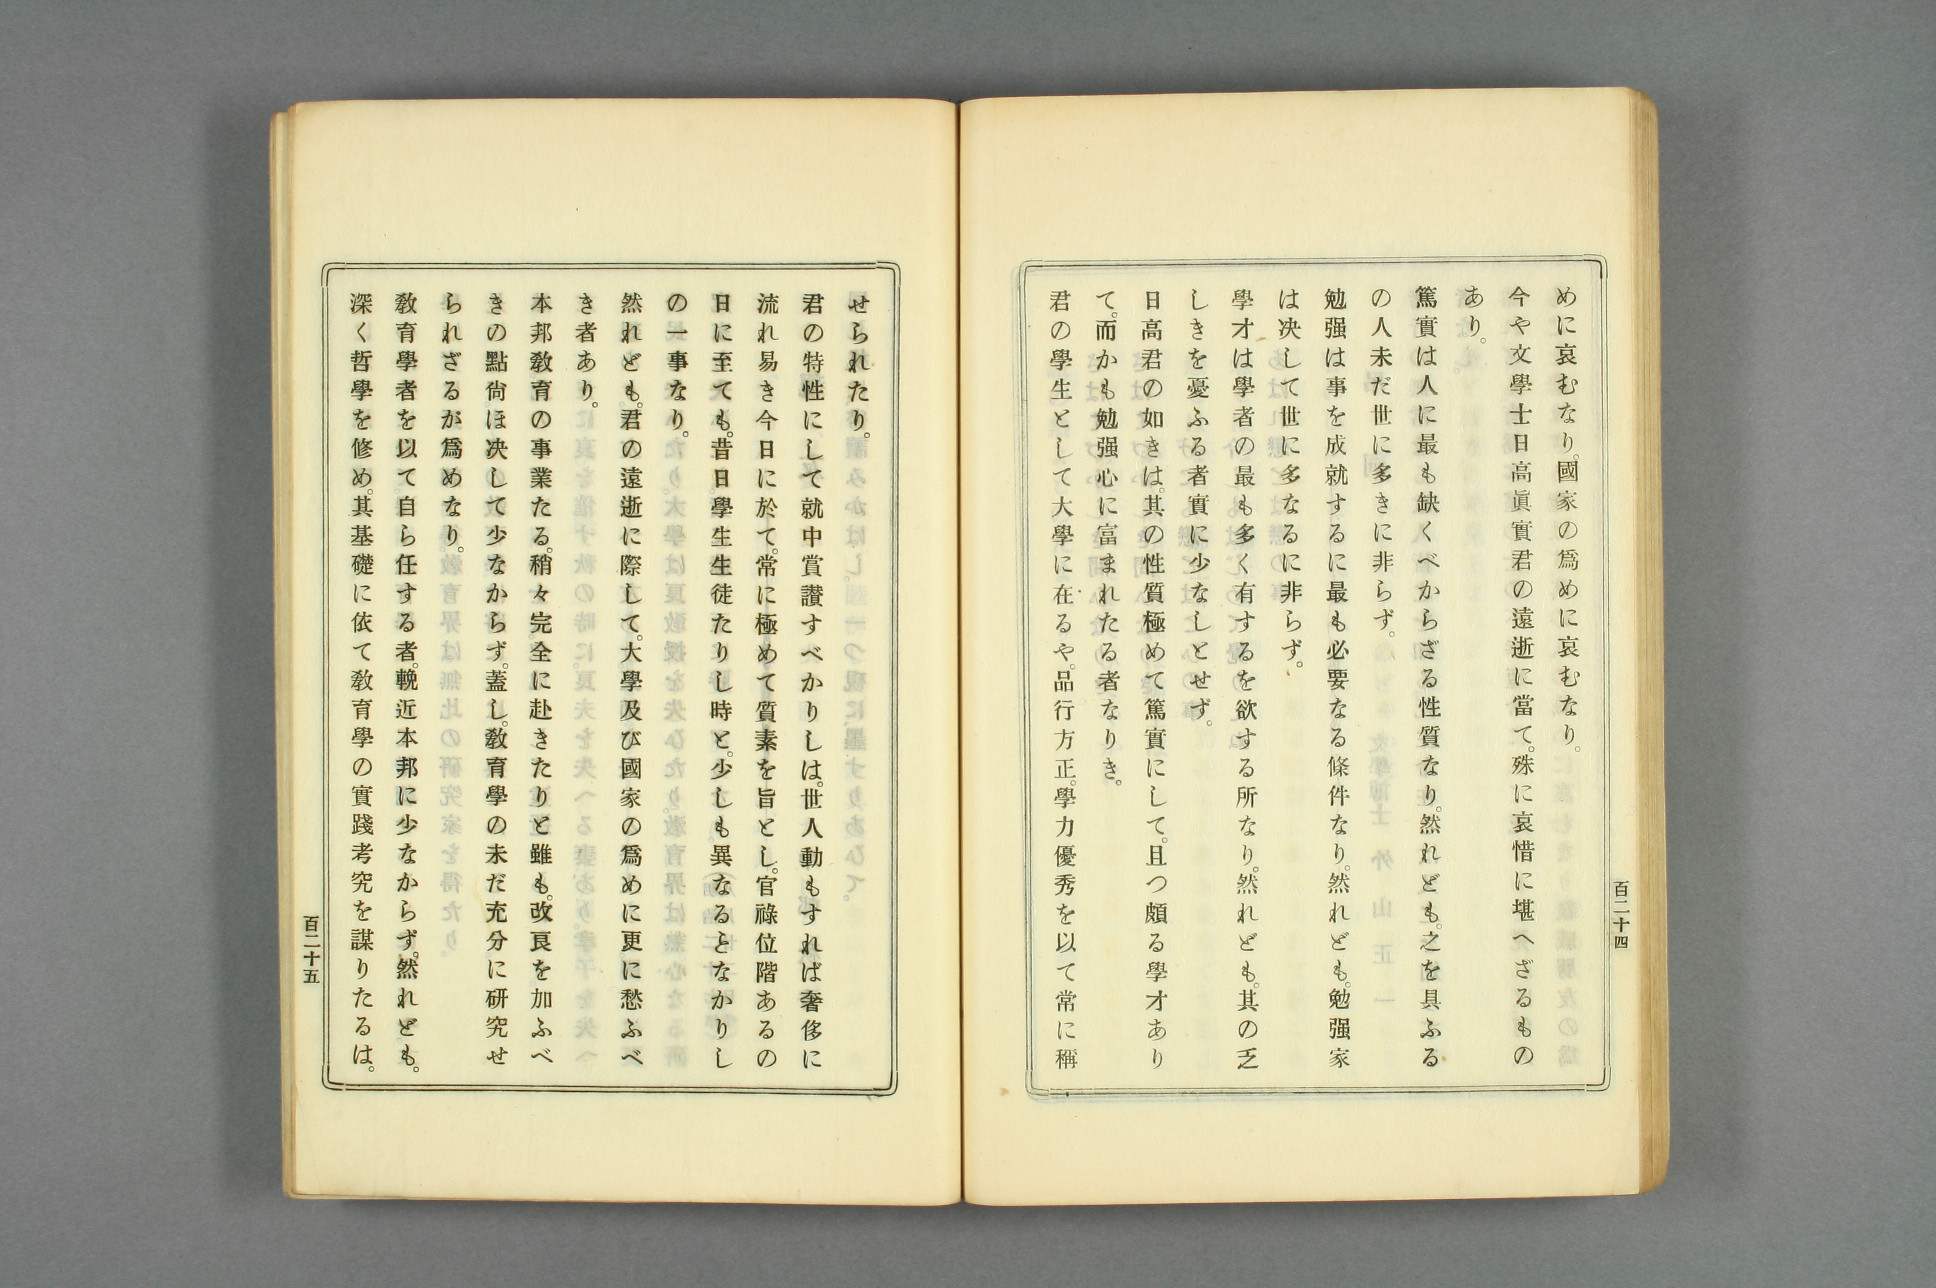 めに哀むなり。國家の爲めに哀むなり。
今や文學士日高眞實君の遠逝に當て。殊に哀惜に堪へざるもの
あり。
篤實は人に最も缺くべからざる性質なり。然れども。之を具ふる
の人未だ世に多きに非らず。
勉强は事を成就するに最も必要なる條件なり。然れども。勉强家
は决して世に多なるに非らず。
學才は學者の最も多く有するを欲する所なり。然れども。其の乏
しきを憂ふる者實に少なしとせず。
日高君の如きは。其の性質極めて篤實にして。且つ頗る學才あり
て。而かも勉强心に富まれたる者なりき。
君の學生として大學に在るや。品行方正。學力優秀を以て常に稱
百二十四
せられたり。
君の特性にして就中賞讃すべかりしは。世人動もすれば奢侈に
流れ易き今日に於て。常に極めて質素を旨とし。官祿位階あるの
日に至ても。昔日學生生徒たりし時と。少しも異なるとなかりし
の一事なり。
然れども。君の遠逝に際して。大學及び國家の爲めに更に愁ふべ
き者あり。
本邦敎育の事業たる。稍々完全に赴きたりと雖も。改良を加ふべ
きの點尙ほ决して少なからず。蓋し。敎育學の未だ充分に硏究せ
られざるが爲めなり。
敎育學者を以て自ら任ずる者。輓近本邦に少なからず。然れども。
深く哲學を修め。其基礎に依て敎育學の實踐考究を謀りたるは。
百二十五